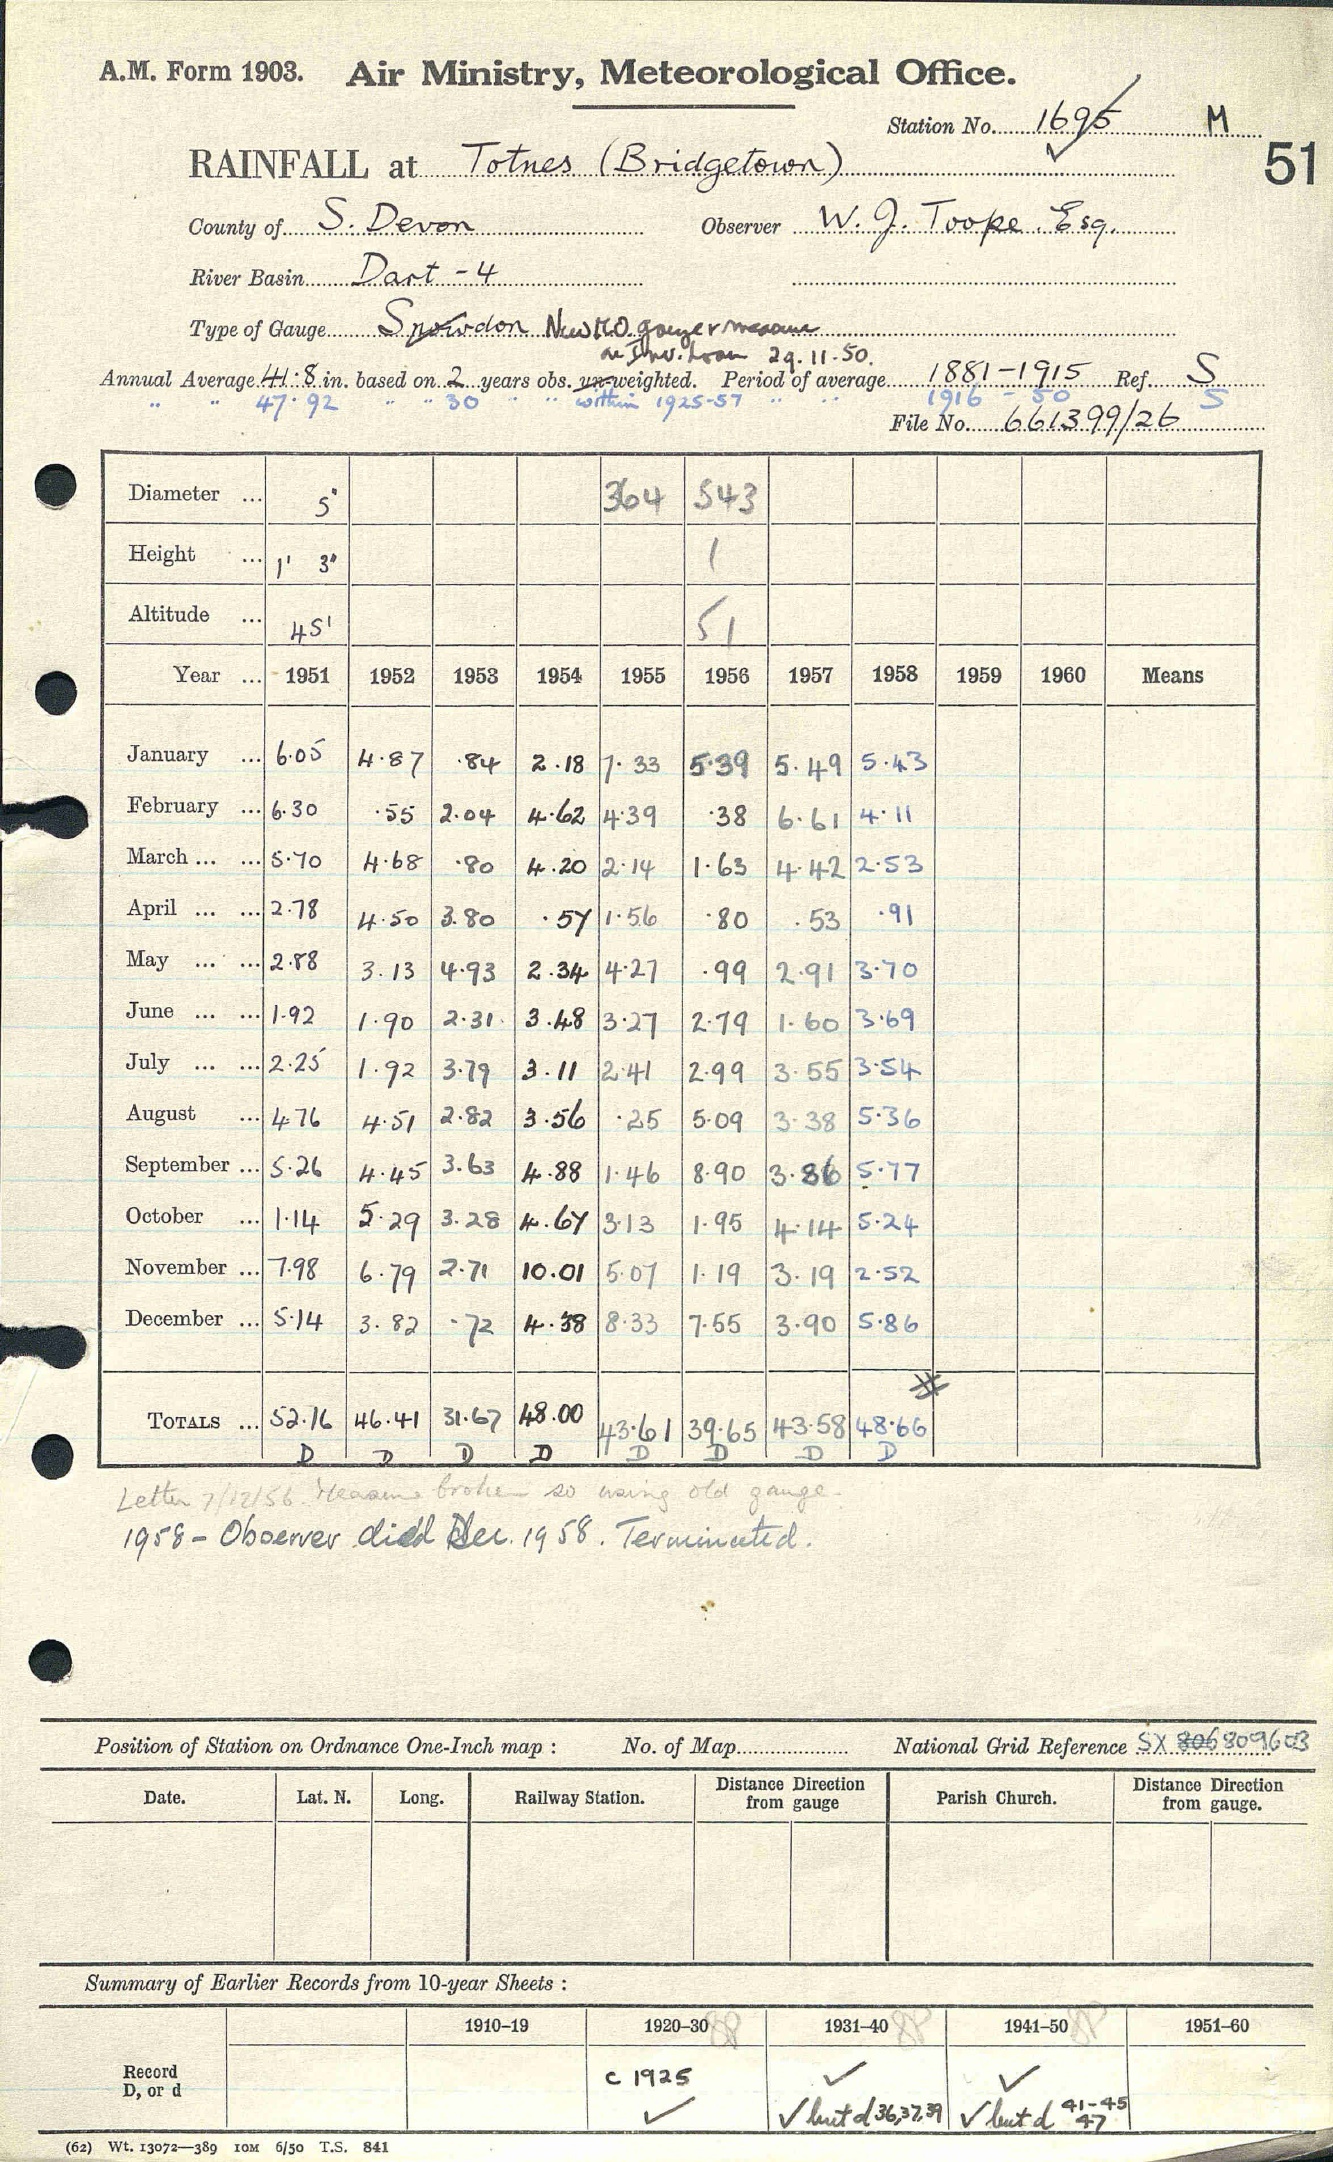 A.M. Form 1903. Air Ministry, Meteorological Office.
Station No. 1695 M
51
RAINFALL at Totnes (Bridgetown)
County of S. Devon Observer W. J. Toope. Esq.
River Basin Dart - 4
Type of Gauge Snowdon New M.O. gauge & measure
on Inv. Loan 29.11.50.
Annual Average 41.8 in. based on 2 years obs. un-weighted. Period of average 1881-1915 Ref. S
" " 47.92 " " 30 " " within 1925-57 " " 1916 - 50 S
File No. 661399/26
Diameter ... 5" 364 543
Height ... 1' 3" 1
Altitude ... 45' 51
Year ... 1951 1952 1953 1954 1955 1956 1957 1958 1959 1960 Means
January ... 6.05 4.87 .84 2.18 7.33 5.39 5.49 5.43
February ... 6.30 .55 2.04 4.62 4.39 .38 6.61 4.11
March ... ... 5.70 4.68 .80 4.20 2.14 1.63 4.42 2.53
April ... ... 2.78 4.50 3.80 .57 1.56 .80 .53 .91
May ... ... 2.88 3.13 4.93 2.34 4.27 .99 2.91 3.70
June ... ... 1.92 1.90 2.31 3.48 3.27 2.79 1.60 3.69
July ... ... 2.25 1.92 3.79 3.11 2.41 2.99 3.55 3.54
August ... 4.76 4.51 2.82 3.56 .25 5.09 3.38 5.36
September ... 5.26 4.45 3.63 4.88 1.46 8.90 3.86 5.77
October ... 1.14 5.29 3.28 4.67 3.13 1.95 4.14 5.24
November ... 7.98 6.79 2.71 10.01 5.07 1.19 3.19 2.52
December ... 5.14 3.82 .72 4.38 8.33 7.55 3.90 5.86
#
TOTALS ... 52.16 46.41 31.67 48.00 43.61 39.65 43.58 48.66
D D D D D D D D
Letter 7/12/56. Measure broken so using old gauge.
1958 - Observer died Dec. 1958. Terminated.
Position of Station on Ordnance One-Inch map : No. of Map National Grid Reference SX 806 809603
Date. Lat. N. Long. Railway Station. Distance Direction from gauge Parish Church. Distance Direction from gauge.
Summary of Earlier Records from 10-year Sheets :
1910-19 1920-30 1931-40 1941-50 1951-60
Record D, or d c 1925 ✓ ✓
✓ ✓ but d 36,37,39 ✓ but d 41-45 47
(62) Wt. 13072—389 10M 6/50 T.S. 841